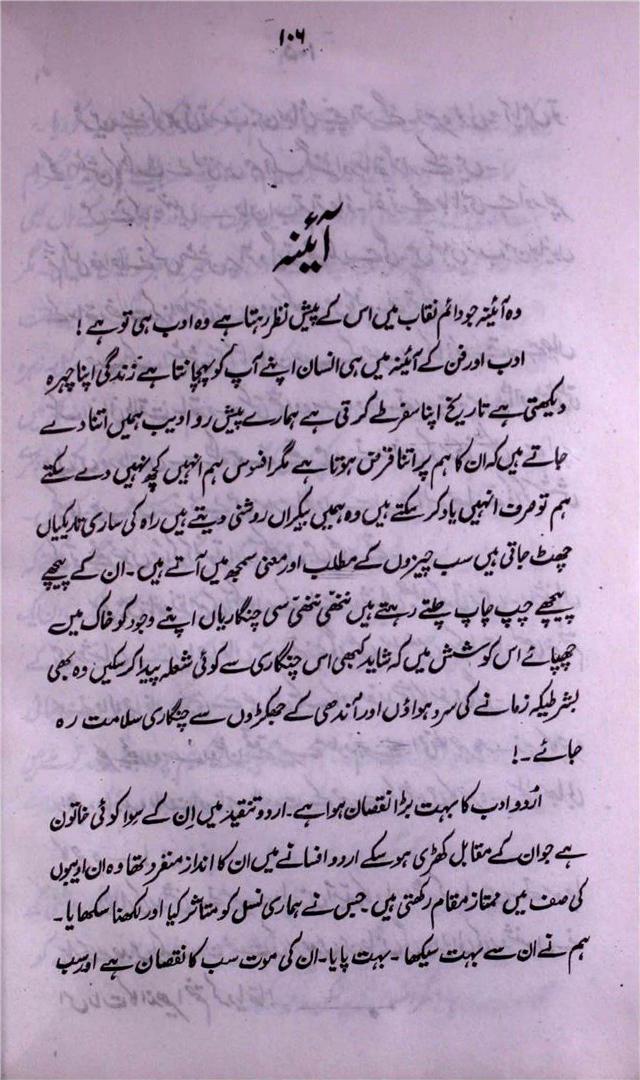 ۱۰۶
آئینہ
وہ آئینہ جو دائم نقاب میں اس کے پیش نظر رہتا ہے وہ ادب ہی تو ہے !
ادب اور فن کے آئینہ میں ہی انسان اپنے آپ کو پہچانتا ہے زندگی اپنا چہرہ
دیکھتی ہے تاریخ اپنا سفر طے کرتی ہے ہمارے پیش رو ادیب ہمیں اتنا دے
جاتے ہیں کہ ان کا ہم پر اتنا قرض ہوتا ہے مگر افسوس ہم انہیں کچھ نہیں دے سکتے
ہم تو صرف انہیں یاد کر سکتے ہیں وہ ہمیں بیکراں روشنی دیتے ہیں راہ کی ساری تاریکیاں
چھٹ جاتی ہیں سب چیزوں کے مطلب اور معنی سمجھ میں آتے ہیں۔ ان کے پیچھے
پیچھے چپ چاپ چلتے رہتے ہیں ننھی ننھی سی چنگاریاں اپنے وجود کو خاک میں
چھپائے اس کوشش میں کہ شاید کبھی اس چنگاری سے کوئی شعلہ پیدا کر سکیں وہ بھی
بشرطیکہ زمانے کی سرد ہواؤں اور آندھی کے جھکڑوں سے چنگاری سلامت رہ
جائے۔!
اُردو ادب کا بہت بڑا نقصان ہوا ہے۔ اردو تنقید میں اِن کے سوا کوئی خاتون
ہے جو ان کے مقابل کھڑی ہو سکے اردو افسانے میں ان کا انداز منفرد تھا وہ ان ادیبوں
کی صف میں ممتاز مقام رکھتی ہیں جس نے ہماری نسل کو متاثر کیا اور لکھنا سکھایا۔
ہم نے ان سے بہت سیکھا۔ بہت پایا۔ ان کی موت سب کا نقصان ہے اور سب